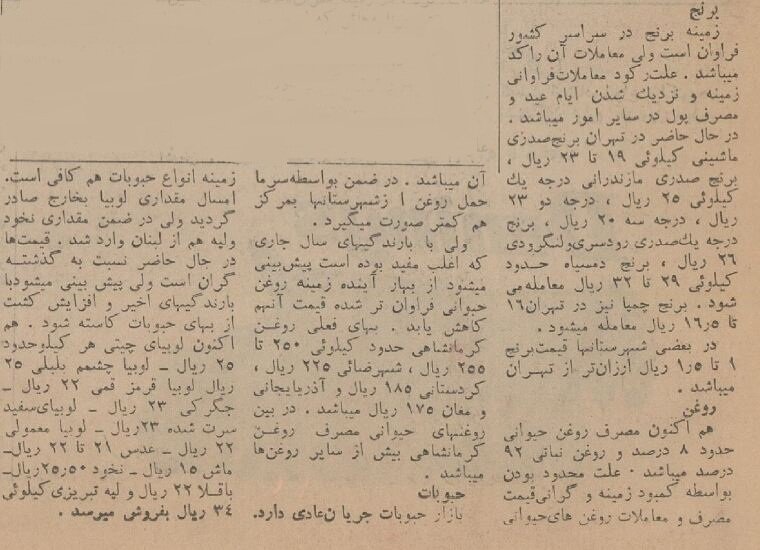 برنج
زمینه برنج در سراسر کشور
فراوان است ولی معاملات آن راکد
میباشد . علت رکود معاملات فراوانی
زمینه و نزدیک شدن ایام عید و
مصرف پول در سایر امور میباشد .
در حال حاضر در تهران برنج صدری
ماشینی کیلوئی ۱۹ تا ۲۳ ریال ،
برنج صدری مازندرانی درجه یک
کیلوئی ۲۵ ریال ، درجه دو ۲۳
ریال ، درجه سه ۲۰ ریال ، برنج
درجه یک صدری رودسری ولنگرودی
۲۶ ریال ، برنج دمسیاه حدود
کیلوئی ۲۹ تا ۳۲ ریال معامله می
شود . برنج چمپا نیز در تهران ۱۶
تا ۱۶٫۵ ریال معامله میشود .
در بعضی شهرستانها قیمت برنج
۱ تا ۱٫۵ ریال ارزان‌تر از تهران
میباشد .
روغن
هم اکنون مصرف روغن حیوانی
حدود ۸ درصد و روغن نباتی ۹۲
درصد میباشد . علت محدود بودن
بواسطه کمبود زمینه و گرانی قیمت
مصرف و معاملات روغن های حیوانی
آن میباشد . در ضمن بواسطه سرما
حمل روغن ا زشهرستانها بمرکز
هم کمتر صورت میگیرد .
ولی با بارندگیهای سال جاری
که اغلب مفید بوده است پیش بینی
میشود از بهار آینده زمینه روغن
حیوانی فراوان تر شده قیمت آنهم
کاهش یابد . بهای فعلی روغن
کرمانشاهی حدود کیلوئی ۲۵۰ تا
۲۵۵ ریال ، شهرضائی ۲۲۵ ریال ،
کردستانی ۱۸۵ ریال و آذربایجانی
و مغان ۱۷۵ ریال میباشد . در بین
روغنهای حیوانی مصرف روغن
کرمانشاهی بیش از سایر روغن‌ها
میباشد .
حبوبات
بازار حبوبات جریان عادی دارد.
زمینه انواع حبوبات هم کافی است.
امسال مقداری لوبیا بخارج صادر
گردید ولی در ضمن مقداری نخود
ولپه هم از لبنان وارد شد . قیمت‌ها
در حال حاضر نسبت به گذشته
گران است ولی پیش بینی میشود با
بارندگیهای اخیر و افزایش کشت
از بهای حبوبات کاسته شود . هم
اکنون لوبیای چیتی هر کیلو حدود
۲۵ ریال ـ لوبیا چشم بلبلی ۲۵
ریال لوبیا قرمز قمی ۲۲ ریال ـ
جگرکی ۲۳ ریال ـ لوبیای سفید
سرت شده ۲۳ ریال ـ لوبیا معمولی
۲۲ ریال ـ عدس ۲۱ تا ۲۲ ریال ـ
ماش ۱۵ ریال ـ نخود ۲۵٫۵۰ ریال ـ
باقلا ۲۲ ریال و لپه تبریزی کیلوئی
۳۴ ریال بفروش میرسد .